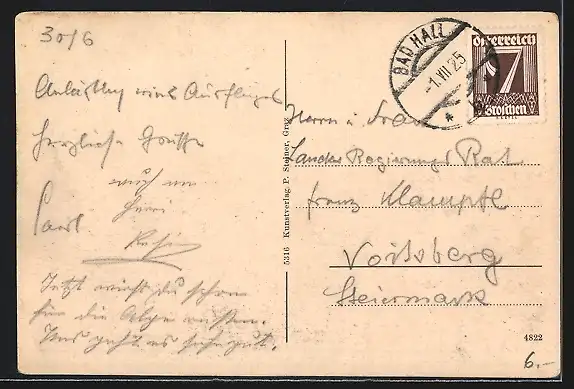 30/6
Anläßlich eines Ausfluges
herzliche Grüße
auch an
Paul
Jetzt wirst du schon
für die Alpe rüsten.
Uns geht es sehr gut.
5316 Kunstverlag P. Steiner, Graz
BAD HALL
-1.VII.25
Österreich
7
Groschen
Herrn u. Frau
Landes Regierungs Rat
Franz Klampfl
Voitsberg
Steiermark
4822
6.-